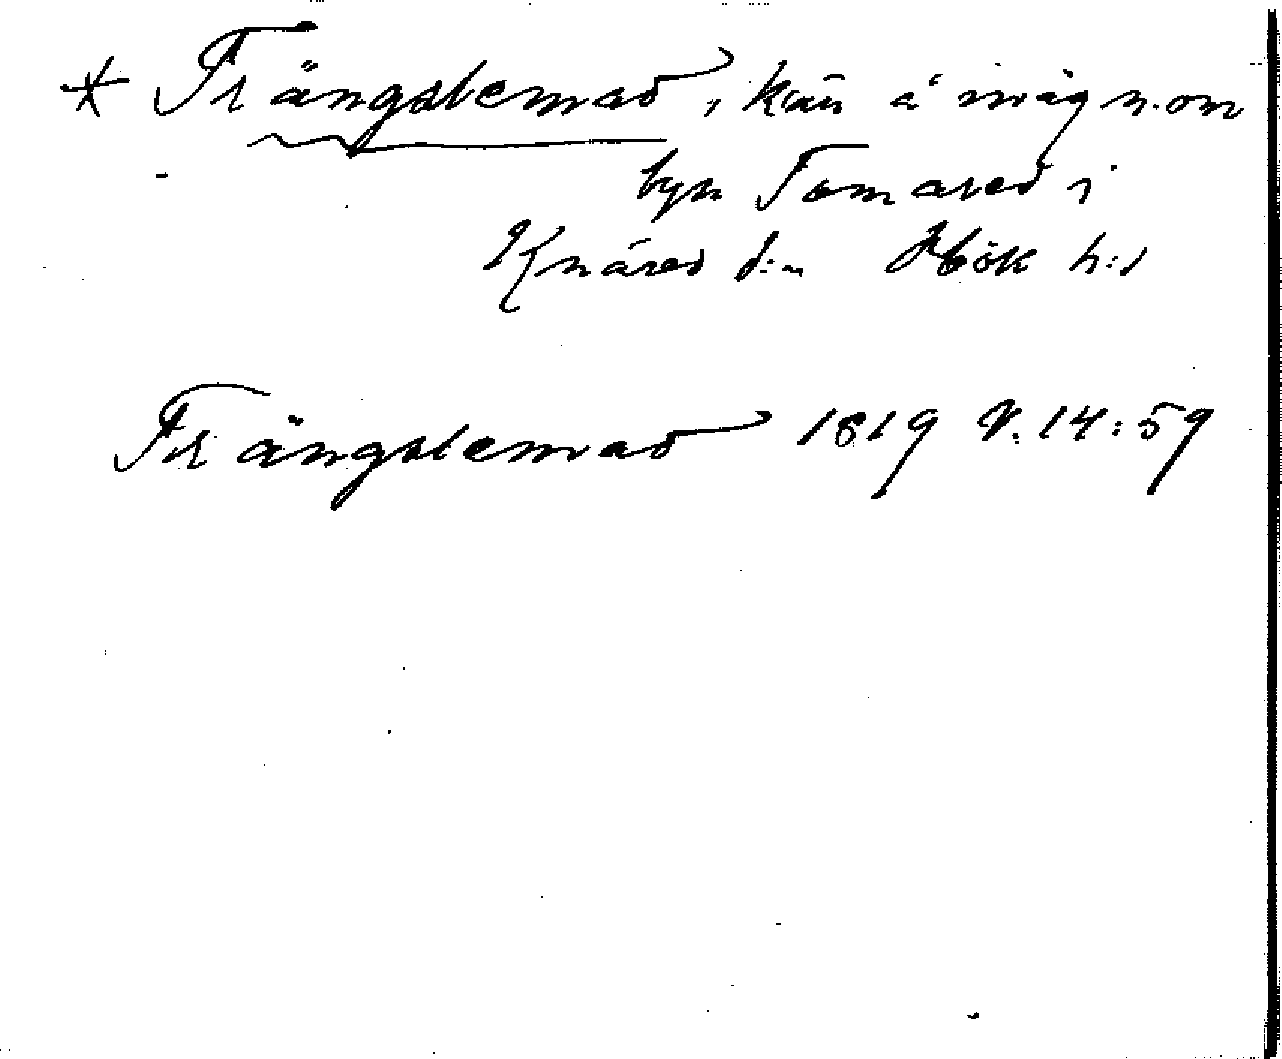 * Trängslemad, kän å inäg n. om
byn Tomared i
Knäred s:n Hök h:d
Trängslemad 1819 V. 14:59